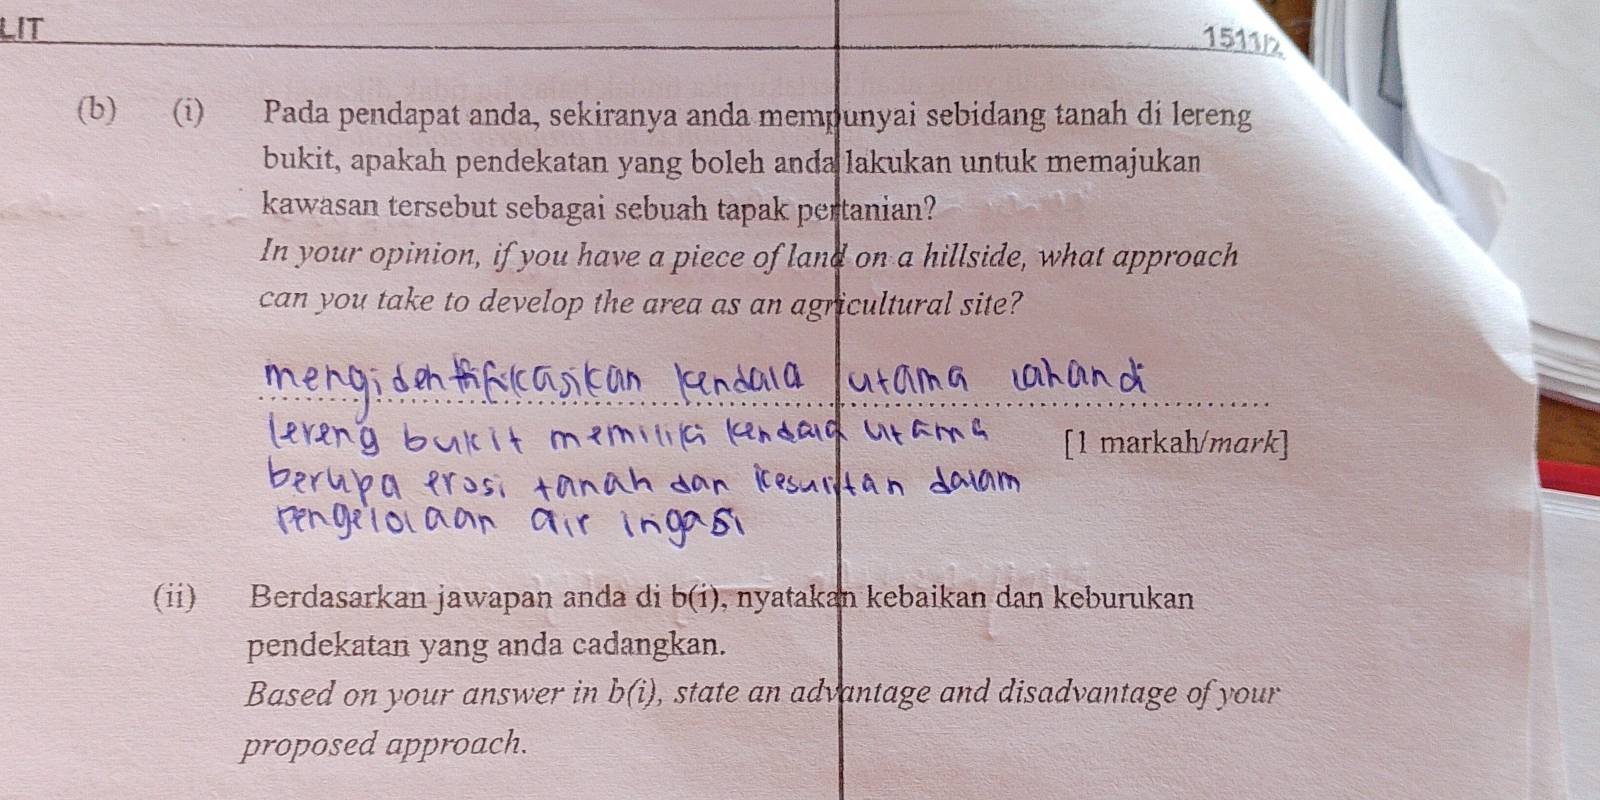 LIT
1511/2
(b) (i) Pada pendapat anda, sekiranya anda mempunyai sebidang tanah di lereng
bukit, apakah pendekatan yang boleh anda lakukan untuk memajukan
kawasan tersebut sebagai sebuah tapak pertanian?
In your opinion, if you have a piece of land on a hillside, what approach
can you take to develop the area as an agricultural site?
mengidentifikasikan kendala utama lahan di
lereng bukit memiliki kendala utama
[1 markah/mark]
berupa erosi tanah dan kesuritan dalam
pengelolaan air ingasi
(ii) Berdasarkan jawapan anda di b(i), nyatakan kebaikan dan keburukan
pendekatan yang anda cadangkan.
Based on your answer in b(i), state an advantage and disadvantage of your
proposed approach.